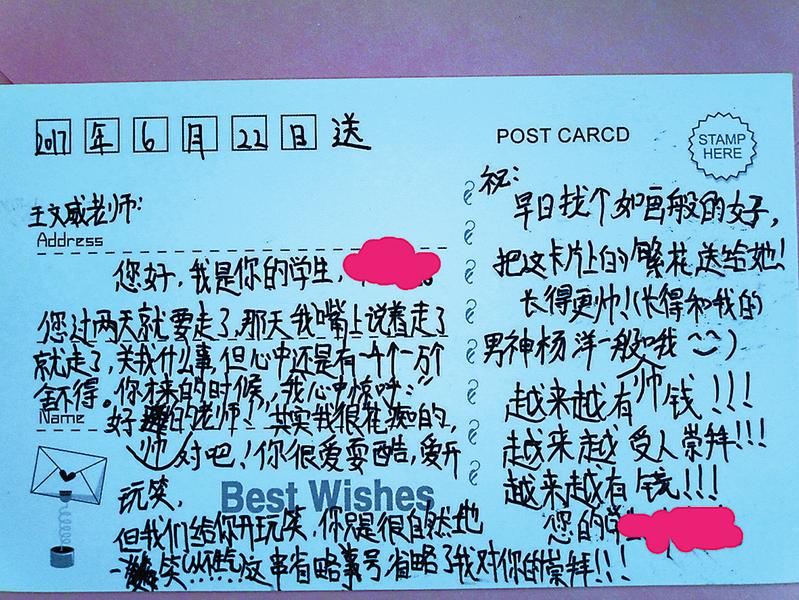 2017年6月22日送
POST CARCD
STAMP
HERE
王文威老师:
Address
您好,我是你的学生,
您过两天就要走了,那天我嘴上说着走了
就走了,关我什么事,但心中还是有一千个一万个
舍不得。你才来的时候,我心中惊呼:“
Name
好帅的老师!”其实我很花痴的,
对吧!你很爱耍酷,爱开
玩笑,
Best Wishes
但我们给你开玩笑,你只是很自然地
一笑(从不生气)……这串省略号,省略了我对你的崇拜!!!
祝:
早日找个如画般的女子,
把这卡片上的繁花送给她!
长得更帅!(长得和我的
男神杨洋一般帅哦)
越来越有钱!!!
越来越受人崇拜!!!
越来越有钱!!!
您的学生